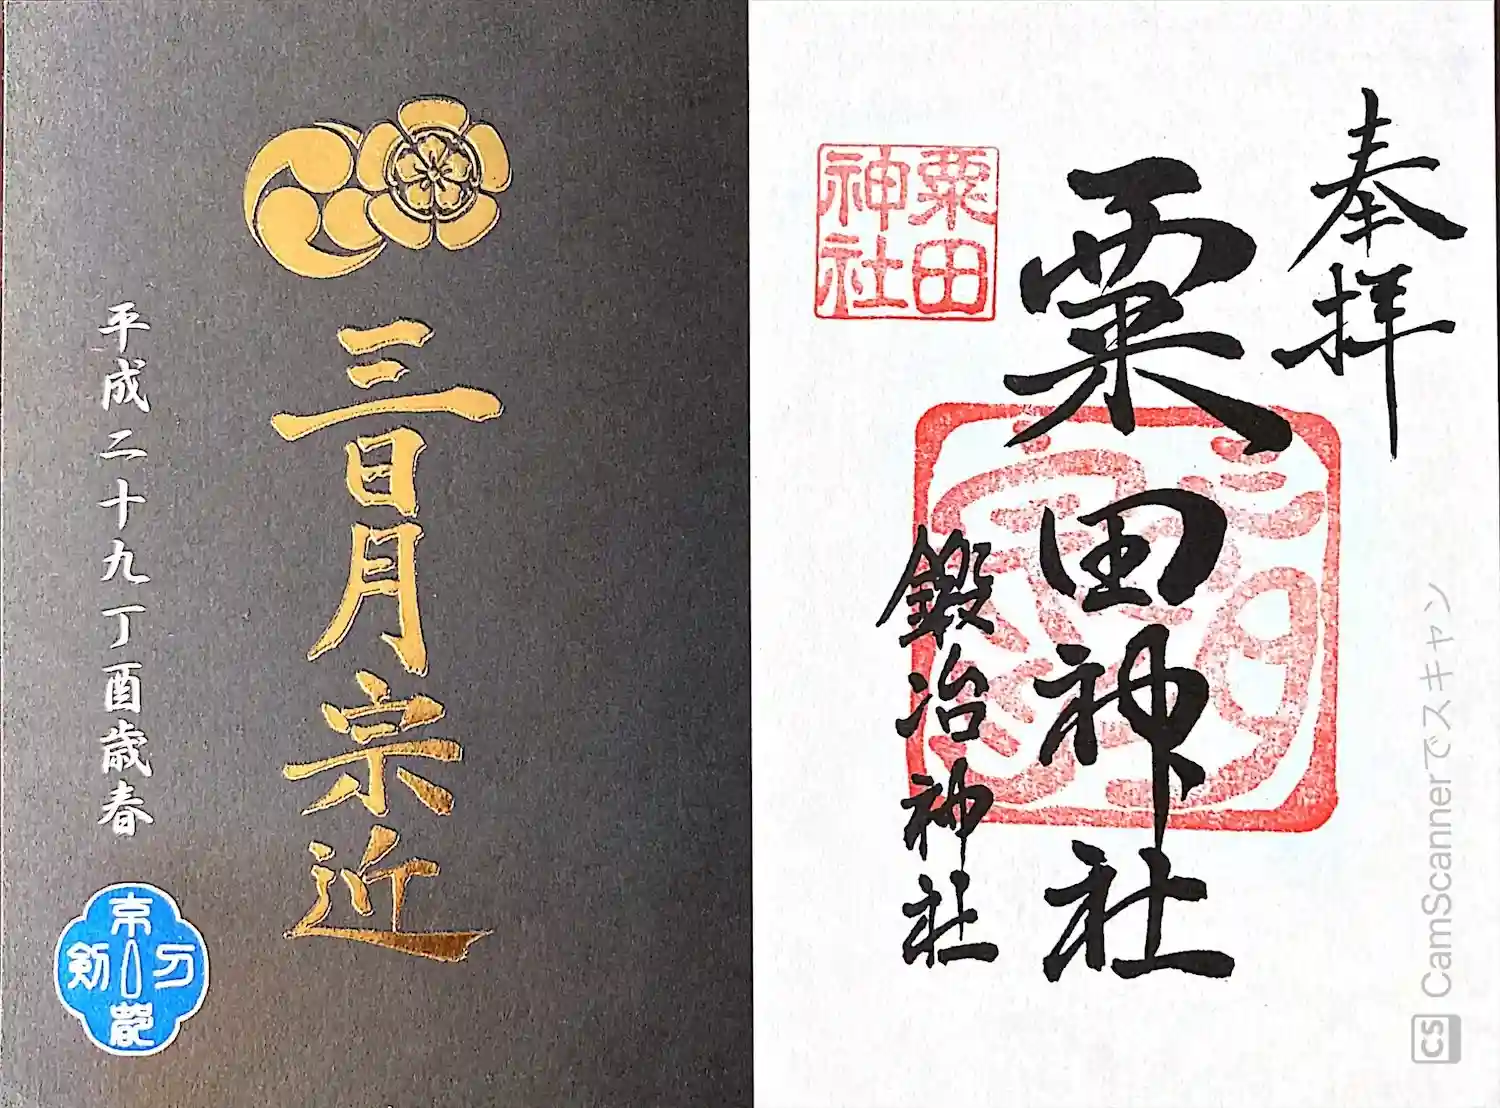 奉拝
粟田神社
鍛冶神社
粟田
神社
三日月宗近
平成二十九丁酉歳春
京
刀
剣
CamScannerでスキャン
CS